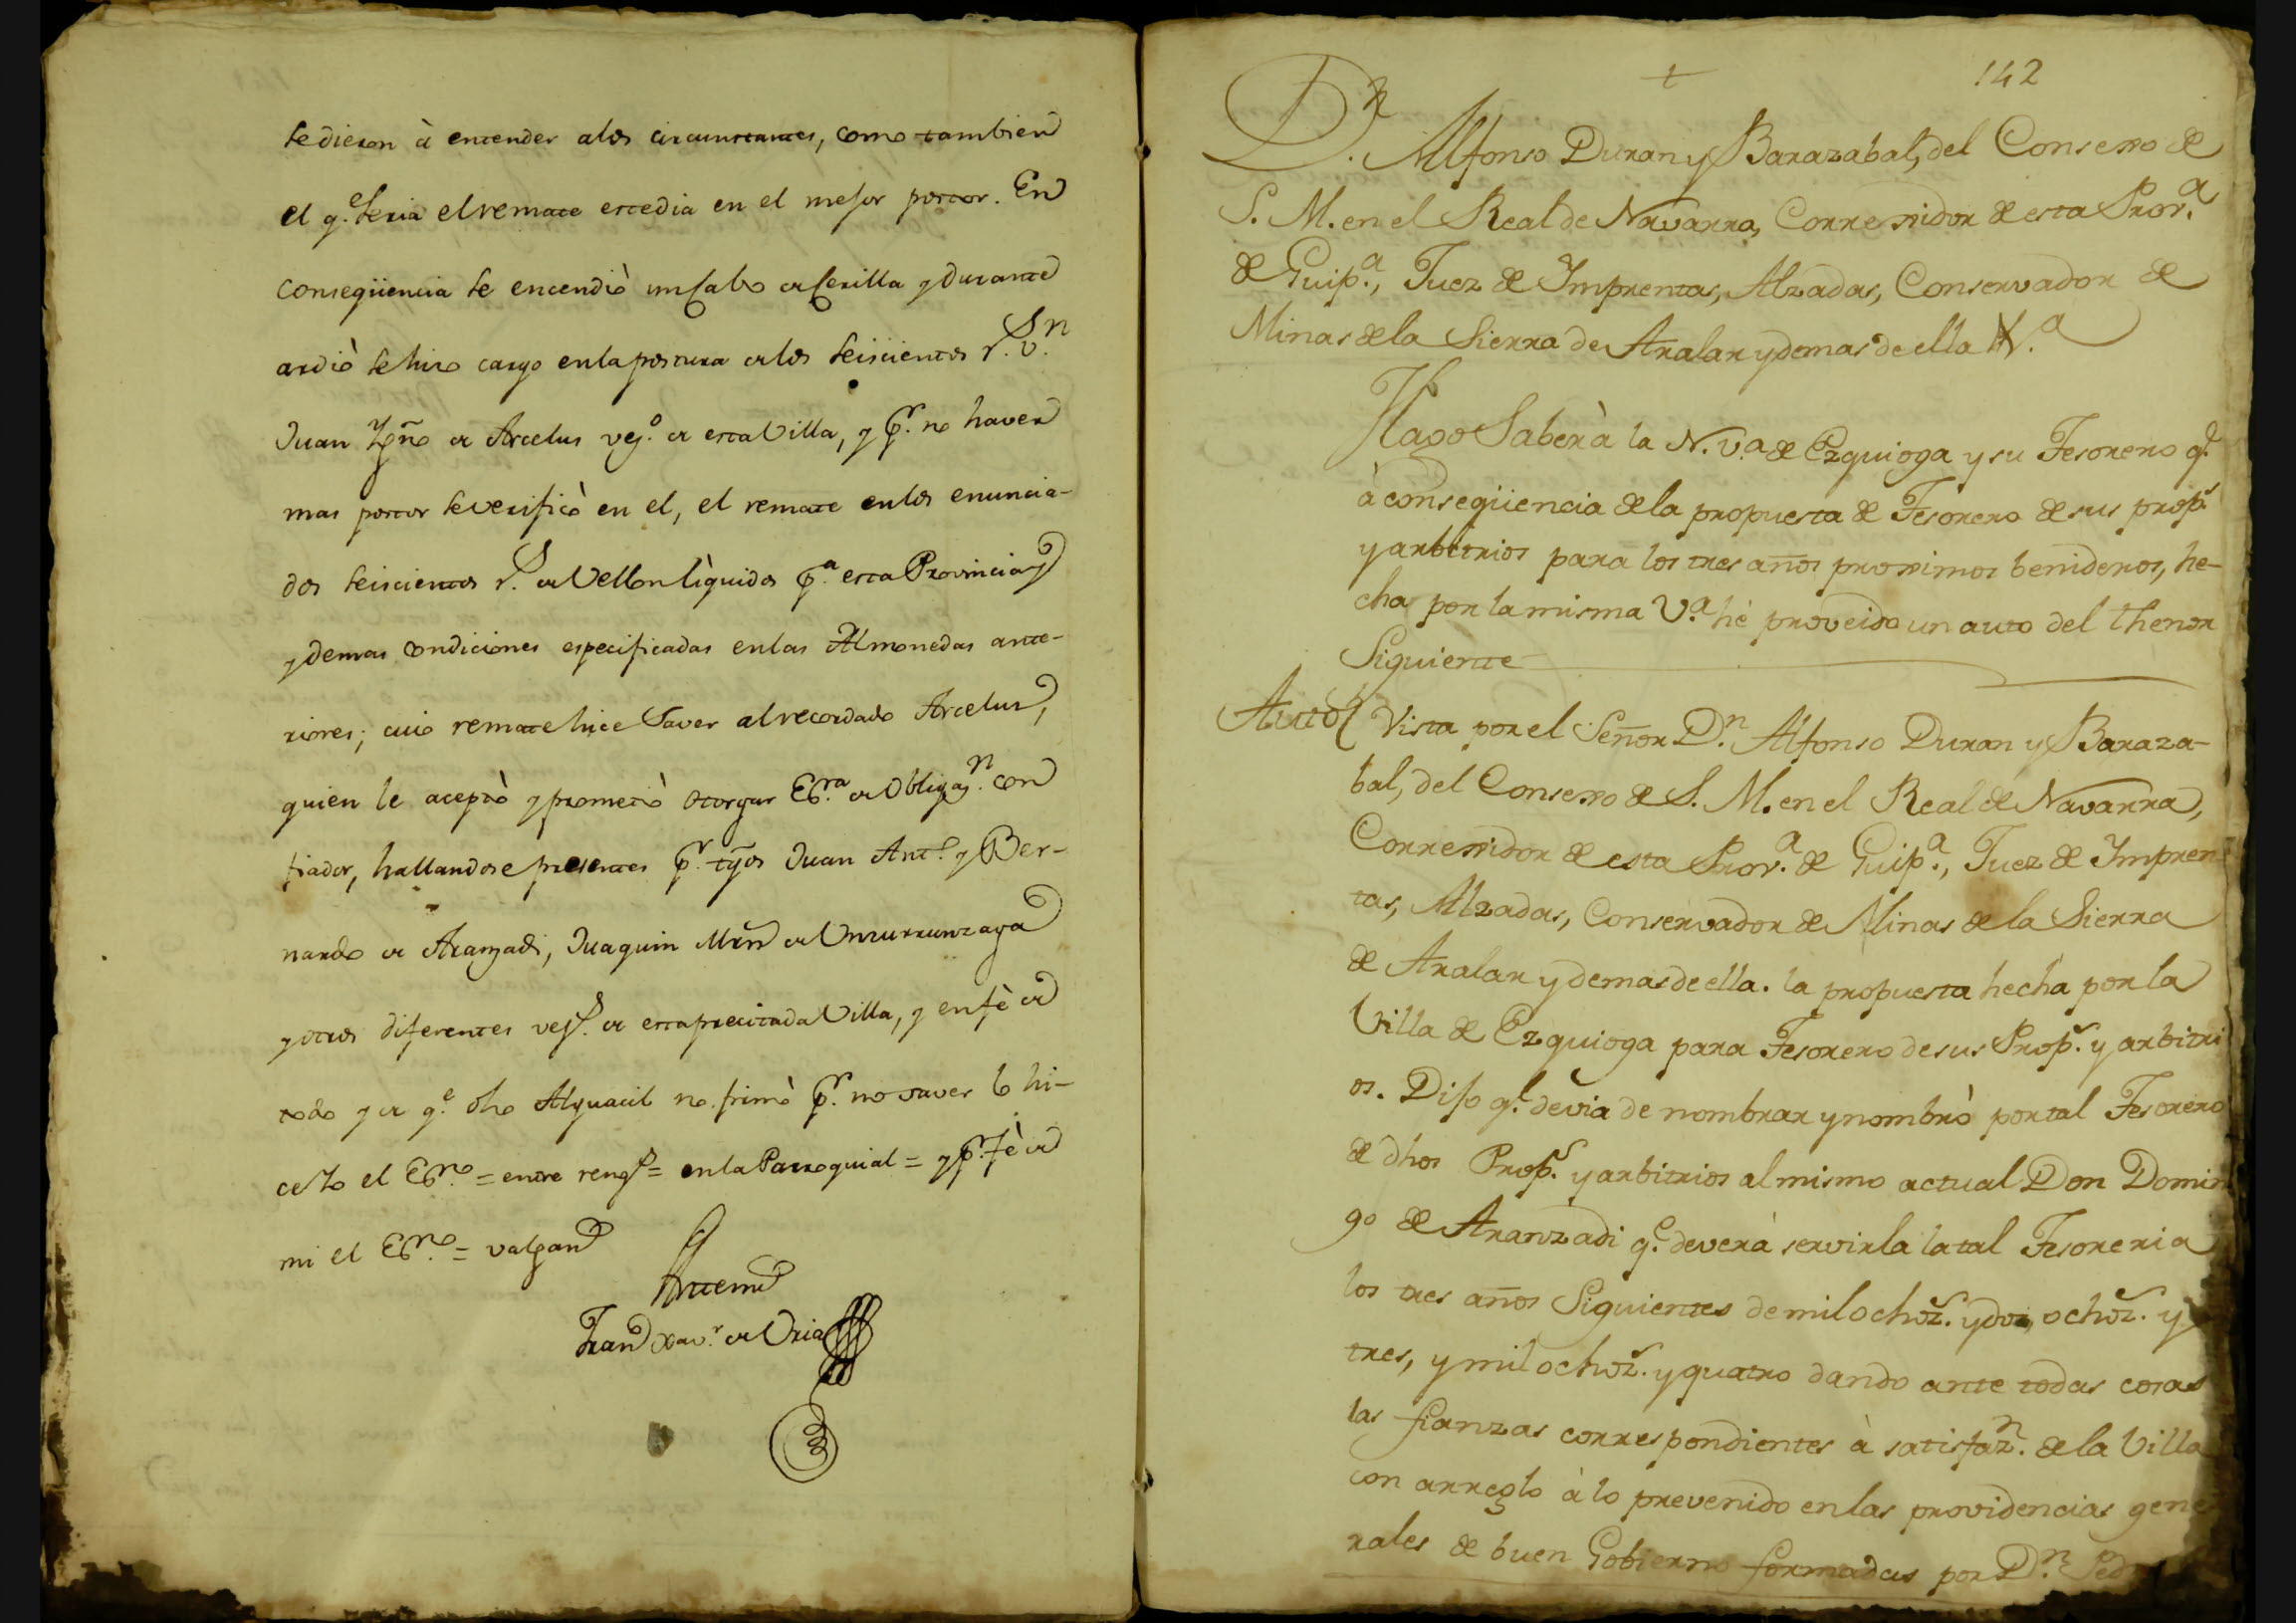 se dieron à entender alos circunstantes, como tambien
el q.e seria el remate escedia en el mejor postor. En
conseqüencia se encendiò un cabo de serilla y durante
ardiò se hizo cargo en la postura de los seiscientos r.s v.n
Juan Ygn.o de Arcelus vez.o de esta Villa, y p.r no haver
mas postor se verificò en el, el remate en los enuncia-
dos seiscientos r.s de Vellon lìquidos p.a esta Provincia
y demas condiciones especificadas en las Almonedas ante-
riores; cuio remate hice saver al recordado Arcelus,
quien le aceptò y prometiò otorgar Es.ra de Obligaz.n con
fiador, hallandose presentes p.r tgos Juan Ant.o y Ber-
nardo de Aranzadi, Juaquin Mrn de Unzurrunzaga
y otros diferentes vez.s de esta precitada Villa, y en fè de
todo y de q.e dho Alguacil no firmò p.r no saver lo hi-
ce Yo el Es.no = entre reng.s = en la Parroquial = y p.r fè de
mi el Es.no = valgan
Antemi
Fran.co Xav.r de Oria
142
D.n Alfonso Duran y Barazabal, del Consexo de
S. M. en el Real de Navarra, Correxidor de esta Prov.a
de Guip.a, Juez de Imprentas, Alzadas, Conservador de
Minas de la Sierra de Aralar y demas de ella V.a
Hago Saber à la N. V.a de Ezquioga y su Tesorero q.e
à conseqüencia de la propuesta de Tesorero de sus prop.s
y arbitrios para los tres años proximos benideros, he-
cha por la misma V.a hè proveido un auto del thenor
Siguiente
Auto Vista por el Señor D.n Alfonso Duran y Baraza-
bal, del Consexo de S. M. en el Real de Navarra,
Correxidor de esta Prov.a de Guip.a, Juez de Impren-
tas, Alzadas, Conservador de Minas de la Sierra
de Aralar y demas de ella. la propuesta hecha por la
Villa de Ezquioga para Tesorero de sus Prop.s y arbitri
os. Dijo q.e devia de nombrar y nombrò por tal Tesorero
de dhos Prop.s y arbitrios al mismo actual Don Domin
go de Aranzadi q.e deverà servirla la tal Tesoreria
los tres años Siguientes de mil ochoz.s y dos, ochoz.s y
tres, y mil ochoz.s y quatro dando ante todas cosas
las fianzas correspondientes à satisfaz.n de la Villa
con arreglo à lo prevenido en las providencias gene
rales de buen Gobierno formadas por D.n Ped